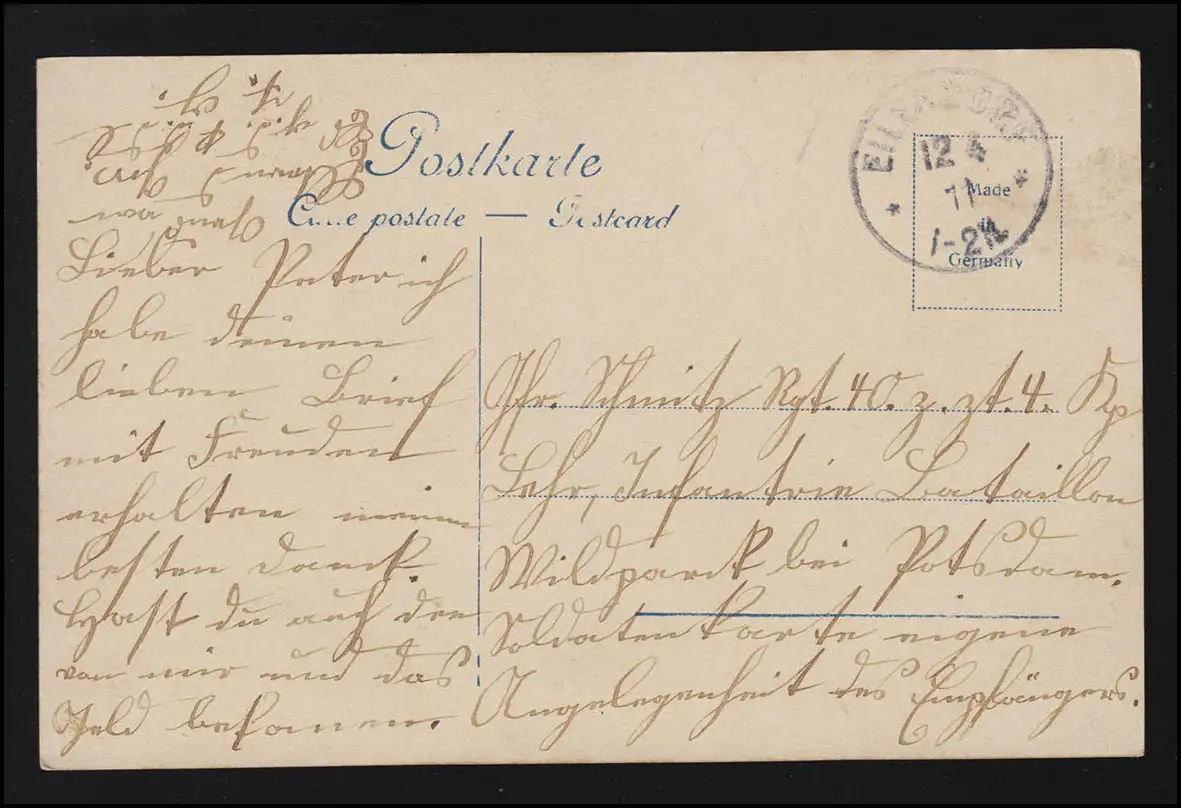 Postkarte
Carte postale — Postcard
12 4
11
1-2N.
Made
in
Germany
Lieber Vater ich
habe deinen
lieben Brief
mit Freuden
erhalten meinen
besten Danck.
Hast du auch den
von mir und das
Geld bekomen.
Gfr. Schmitz Rgt. 40. z. zt. 4. Kp
Lehr, Infantrie Bataillon
Wildparck bei Potsdam.
Soldatenkarte eigene
Angelegenheit des Empfängers.